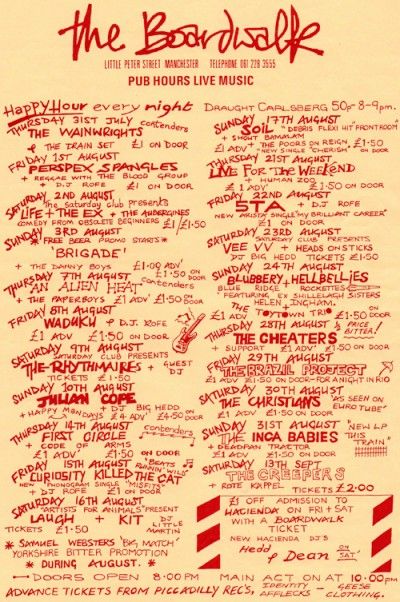 the Boardwalk
LITTLE PETER STREET MANCHESTER TELEPHONE 061 228 3555
PUB HOURS LIVE MUSIC
Happy Hour every night DRAUGHT CARLSBERG 50p 8-9pm.
THURSDAY 31ST JULY contenders
THE WAINWRIGHTS
+ THE TRAIN SET £1 ON DOOR
FRIDAY 1ST AUGUST
PERSPEX SPANGLES
+ REGGAE WITH THE BLOOD GROUP
+ DJ ROFE £1 ON DOOR
SATURDAY 2ND AUGUST
The Saturday club presents
LIFE + THE EX + THE AUBERGINES
COMEDY FROM OBSOLETE BEGINNERS £1/£1.50
SUNDAY 3RD AUGUST
* FREE BEER PROMO STARTS *
'BRIGADE'
+ THE DANNY BOYS £1.00 ADV
£1.50 ON DOOR
THURSDAY 7TH AUGUST
'AN ALIEN HEAT' contenders
+ THE PAPERBOYS £1 ADV £1.50 ON DOOR
FRIDAY 8TH AUGUST
WADUKU + D.J. ROFE
£1 ADV £1.50 ON DOOR
SATURDAY 9TH AUGUST
SATURDAY CLUB PRESENTS
THE RHYTHMAIRES + GUEST DJ
TICKETS £1.50
SUNDAY 10TH AUGUST
JULIAN COPE
+ HAPPY MONDAYS + DJ BIG HEDD £4 ADV £4.50 ON DOOR
THURSDAY 14TH AUGUST
FIRST CIRCLE contenders
+ CODE OF ARMS
£1 ADV £1.50 ON DOOR
FRIDAY 15TH AUGUST "BEATS RUNNIN' WILD"
CURIOSITY KILLED THE CAT
NEW PHONOGRAM SINGLE "MISFITS"
+ DJ ROFE £1 ON DOOR
SATURDAY 16TH AUGUST
"ARTISTS FOR ANIMALS" PRESENT
LAUGH + KIT DJ LITTLE MARTIN
TICKETS £1.50
* SAMUEL WEBSTERS 'BIG MATCH'
YORKSHIRE BITTER PROMOTION
* DURING AUGUST. *
SUNDAY 17TH AUGUST
SOIL "DEBRIS FLEXI HIT" FRONTROOM
+ SHOUT BAMALAM
+ THE POORS ON REIGN £1.50
£1 ADV "NEW SINGLE "CHERISH" ON DOOR
THURSDAY 21ST AUGUST
LIVE FOR THE WEEKEND
+ HUMAN ZOO
£1 ADV £1.50 ON DOOR
FRIDAY 22ND AUGUST
5TA + DJ ROFE
NEW ARISTA SINGLE 'MY BRILLIANT CAREER'
£1 ON DOOR
SATURDAY 23RD AUGUST
SATURDAY CLUB PRESENTS
VEE VV + HEADS ON STICKS
DJ BIG HEDD TICKETS £1.50
SUNDAY 24TH AUGUST
BLUBBERY + HELLBELLIES
BLUE RIDGE ROCKETTES
FEATURING EX SHILLELAGH SISTERS
HELEN INGHAM.
THE TOYTOWN TRIO
£1 ADV £1.50 ON DOOR
THURSDAY 28TH AUGUST ½ PRICE BITTER!
THE CHEATERS
+ SUPPORT £1 ADV £1.50 ON DOOR
FRIDAY 29TH AUGUST
THE BRAZIL PROJECT
£1 ADV £1.50 ON DOOR - FOR A NIGHT IN RIO
SATURDAY 30TH AUGUST
THE CHRISTIANS "AS SEEN ON EUROTUBE"
£1 ADV £1.50 ON DOOR
SUNDAY 31ST AUGUST "NEW LP
THE INCA BABIES THIS TRAIN"
+ DEADFAN TRACTOR
£1 ADV £1.50 ON DOOR
SATURDAY 13TH SEPT
THE CREEPERS
+ ROTE KAPPEL TICKETS £2.00
£1 OFF ADMISSION TO
HACIENDA ON FRI + SAT
WITH A BOARDWALK
TICKET
NEW HACIENDA DJ'S
Hedd + Dean ON SAT
DOORS OPEN 8:00PM MAIN ACT ON AT 10:00pm
ADVANCE TICKETS FROM PICCADILLY REC'S, IDENTITY AFFLECKS - GEESE CLOTHING.